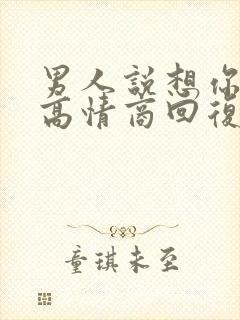 男人説想你
高情商回復
童琪未至